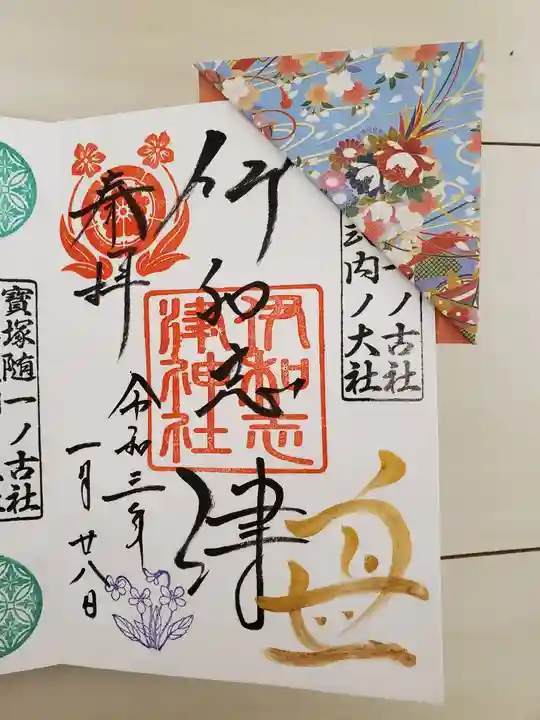 一ノ古社
内ノ大社
伊和志津
伊和志
津神社
奉拝
令和三年
一月廿八日
寶塚随一ノ古社